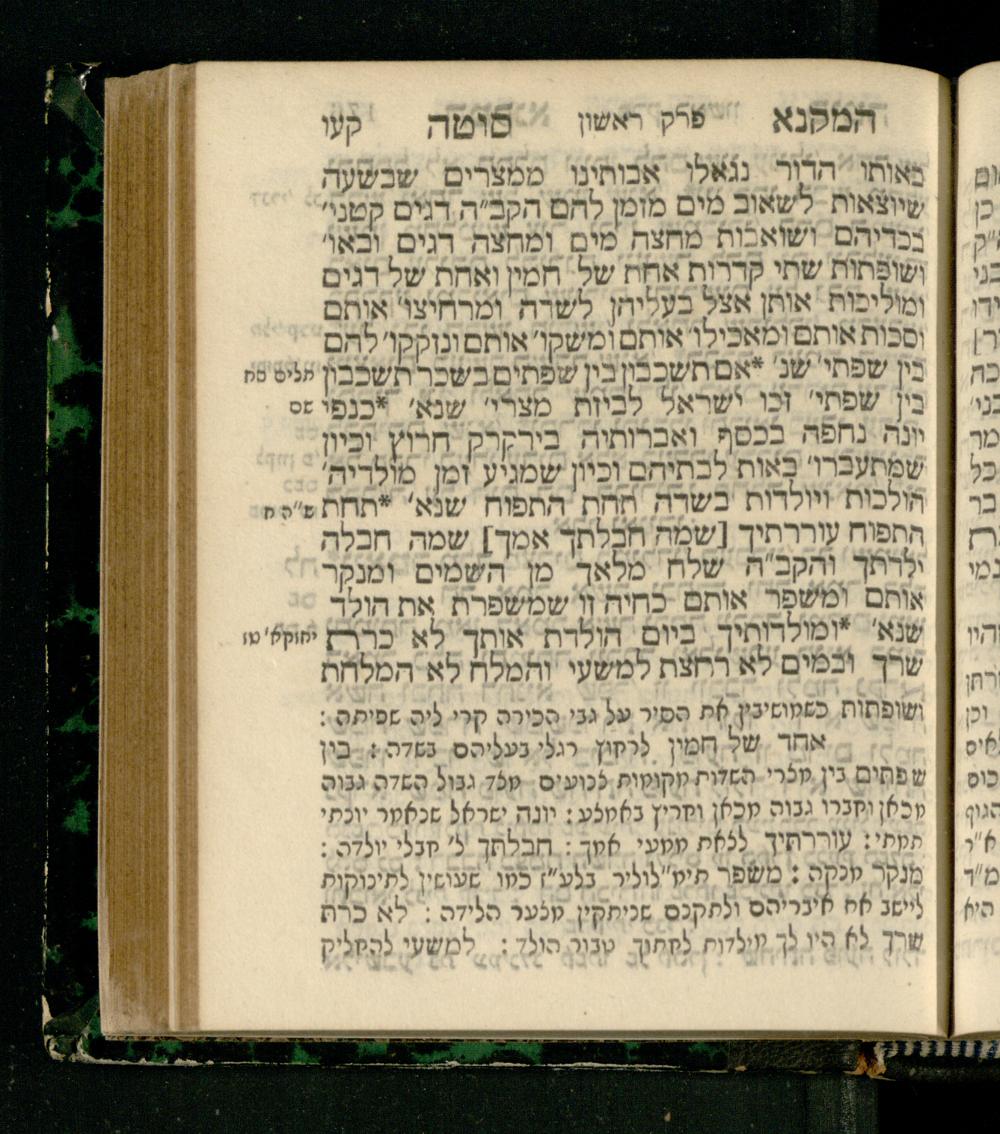 המקנא פרק ראשון סוטה קעו
באותו הדור נגאלו אבותינו ממצרים שבשעה
שיוצאות לשאוב מים מזמן להם הקב״ה דגים קטני׳
בכדיהם ושואבות מחצה מים ומחצה דגים ובאו׳
ושופתות שתי קדרות אחת של חמין ואחת של דגים
ומוליכות אותן אצל בעליהן לשדה ומרחיצו׳ אותם
וסכות אותם ומאכילו׳ אותם ומשקו׳ אותם ונזקקו׳ להם
בין שפתי׳ שנ׳ *אם תשכבון בין שפתים בשכר תשכבון תלים סח
בין שפתי׳ זכו ישראל לביזת מצרי׳ שנא׳ *כנפי שם
יונה נחפה בכסף ואברותיה בירקרק חרוץ וכיון
שמתעברו׳ באות לבתיהם וכיון שמגיע זמן מולדיה׳
הולכות ויולדות בשדה תחת התפוח שנא׳ *תחת ש״ה ח
התפוח עוררתיך [שמה חבלתך אמך] שמה חבלה
ילדתך והקב״ה שלח מלאך מן השמים ומנקר
אותם ומשפר אותם כחיה זו שמשפרת את הולד
שנא׳ *ומולדותיך ביום הולדת אותך לא כררת יחזקא׳ טז
שרך ובמים לא רחצת למשעי והמלח לא המלחת
ושופתות כשמושיבין את הסיר על גבי הכירה קרי ליה שפיתה :
אחד של חמין לרחוץ רגלי בעליהם בשדה : בין
שפתים בין מצרי השדות מקומות צנועים מצד גבול השדה גבוה
מכאן וחברו גבוה מכאן וחריץ באמצע : יונה ישראל שנאמר יונתי
תמתי : עוררתיך לצאת ממעי אמך : חבלתך ל׳ חבלי יולדה :
מנקר מנקה : משפר לוליר בלע״ז כמו שעושין לתינוקות
ליישב את איבריהם ולתקנם שניתקין מצער הלידה : לא כרת
שרך לא היו לך מילדות לחתוך טבור הולד : למשעי להחליק